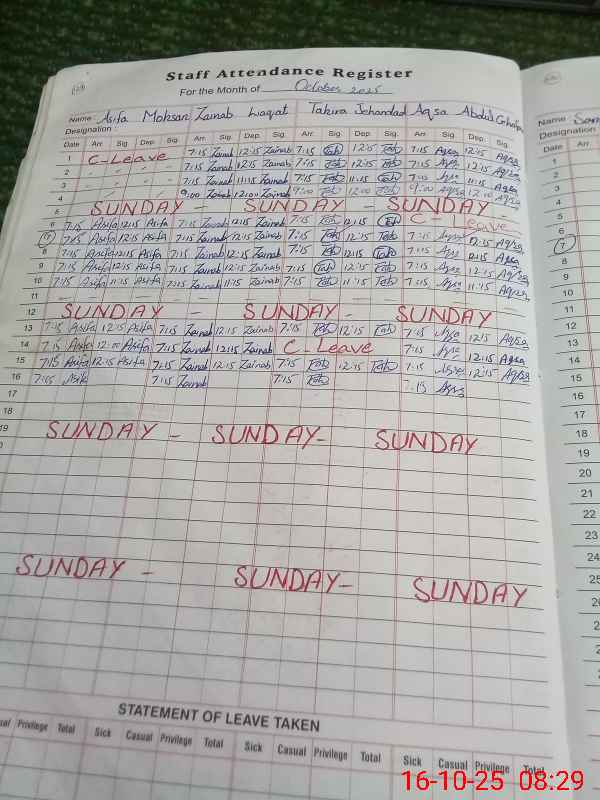 Staff Attendance Register
For the Month of October 2025
Name : Asifa Mohsan Zainab Liaqat Tahira Jehandad Aqsa Abdul
Designation :
Date Arr. Sig. Dep. Sig. Arr. Sig. Dep. Sig. Arr. Sig. Dep. Sig. Arr. Sig. Dep. Sig.
1 C-Leave 7:15 Zainab 12:15 Zainab 7:15 Tah 12:15 Tah 7:15 Aqsa 12:15 Aqsa
2 " " " 7:15 Zainab 12:15 Zainab 7:15 Tah 12:15 Tah 7:15 Aqsa 12:15 Aqsa
3 " " " 7:15 Zainab 11:15 Zainab 7:15 Tah 11:15 Tah 7:15 Aqsa 11:15 Aqsa
4 " " " 9:00 Zainab 12:00 Zainab 9:00 Tah 12:00 Tah 9:00 Aqsa 12:00 Aqsa
5 SUNDAY - SUNDAY - SUNDAY -
6 7:15 Asifa 12:15 Asifa 7:15 Zainab 12:15 Zainab 7:15 Tah 12:15 Tah C - Leave
7 7:15 Asifa 12:15 Asifa 7:15 Zainab 12:15 Zainab 7:15 Tah 12:15 Tah 7:15 Aqsa 12:15 Aqsa
8 7:15 Asifa 12:15 Asifa 7:15 Zainab 12:15 Zainab 7:15 Tah 12:15 Tah 7:15 Aqsa 12:15 Aqsa
9 7:15 Asifa 12:15 Asifa 7:15 Zainab 12:15 Zainab 7:15 Tah 12:15 Tah 7:15 Aqsa 12:15 Aqsa
10 7:15 Asifa 11:15 Asifa 7:15 Zainab 11:15 Zainab 7:15 Tah 11:15 Tah 7:15 Aqsa 11:15 Aqsa
11
12 SUNDAY - SUNDAY - SUNDAY
13 7:15 Asifa 12:15 Asifa 7:15 Zainab 12:15 Zainab 7:15 Tah 12:15 Tah 7:15 Aqsa 12:15 Aqsa
14 7:15 Asifa 12:00 Asifa 7:15 Zainab 12:15 Zainab C - Leave 7:15 Aqsa 12:15 Aqsa
15 7:15 Asifa 12:15 Asifa 7:15 Zainab 12:15 Zainab 7:15 Tah 12:15 Tah 7:15 Aqsa 12:15 Aqsa
16 7:15 Asifa 7:15 Zainab 7:15 Tah 7:15 Aqsa
17
18
19 SUNDAY - SUNDAY - SUNDAY
SUNDAY - SUNDAY - SUNDAY
STATEMENT OF LEAVE TAKEN
Privilege Total Sick Casual Privilege Total Sick Casual Privilege Total Sick Casual Privilege Total
Name :
Designation
Date Arr.
1
2
3
4
5
6
7
8
9
10
11
12
13
14
15
16
17
18
19
20
21
22
23
24
25
26
28
29
30
31
16-10-25 08:29